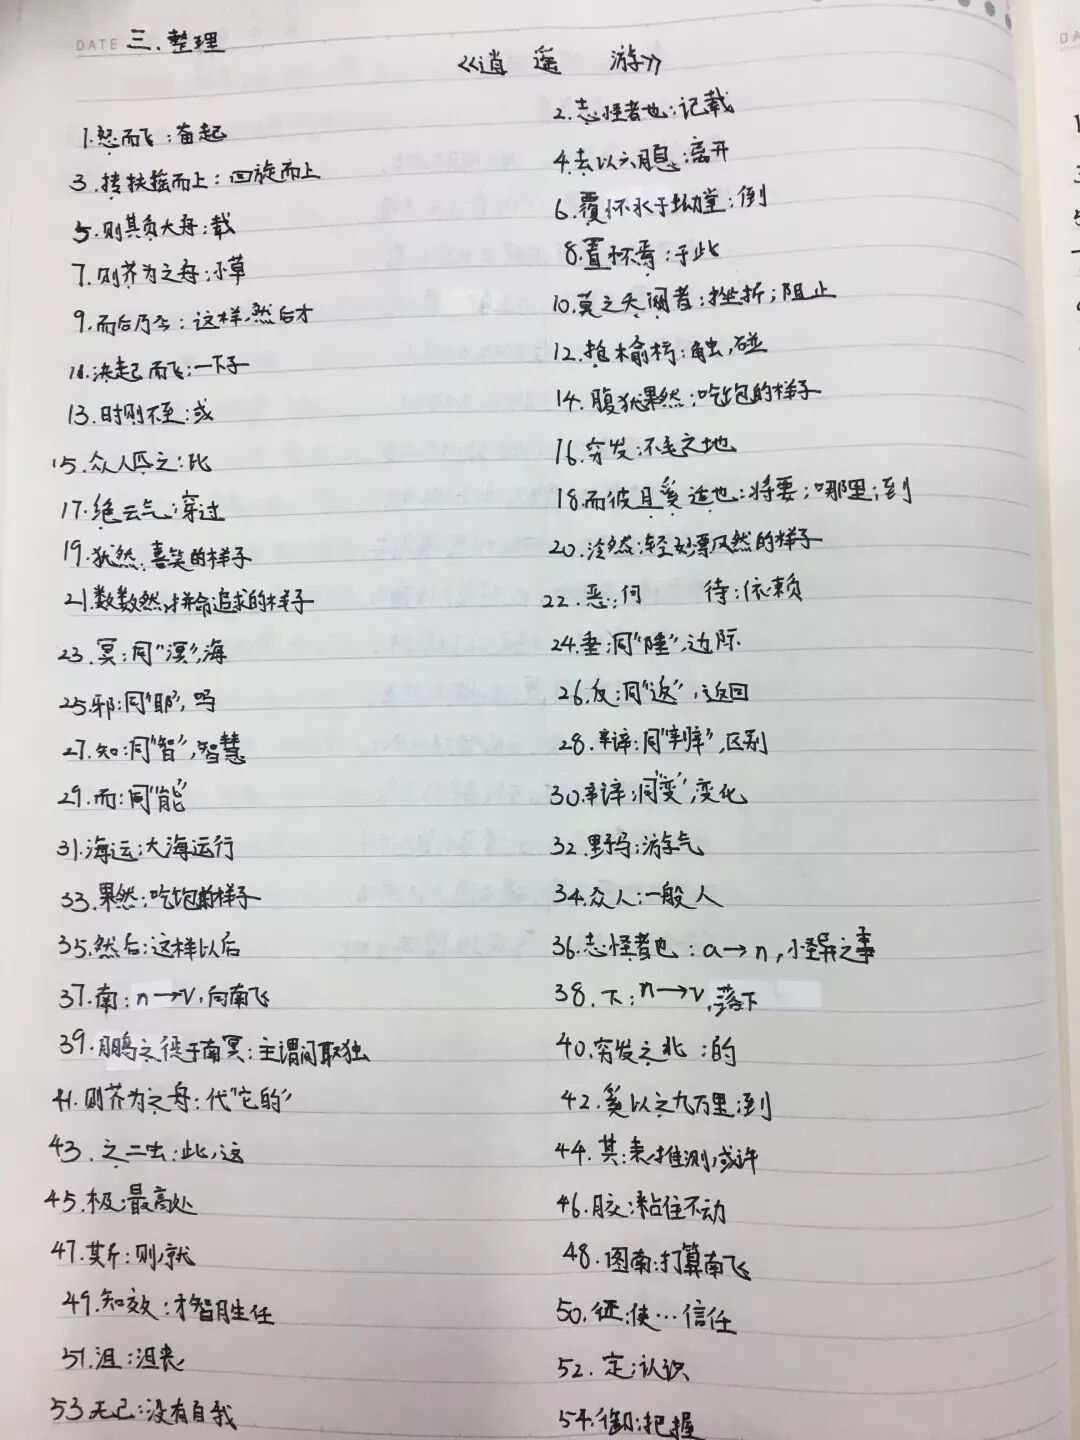 DATE 三.整理
《逍遥游》
1.怒而飞:奋起
2.志怪者也:记载
3.抟扶摇而上:回旋而上
4.去以六月息:离开
5.则其负大舟:载
6.覆杯水于坳堂:倒
7.则芥为之舟:小草
8.置杯焉:于此
9.而后乃今:这样,然后才
10.莫之夭阏者:挫折;阻止
11.决起而飞:一下子
12.抢榆枋:触,碰
13.时则不至:或
14.腹犹果然:吃饱的样子
15.众人匹之:比
16.穷发:不毛之地
17.绝云气:穿过
18.而彼且奚适也:将要;哪里;到
19.犹然:喜笑的样子
20.泠然:轻妙飘然的样子
21.数数然:拼命追求的样子
22.恶:何 待:依赖
23.冥:同"溟",海
24.垂:同"陲",边际
25.邪:同"耶",吗
26.反:同"返",返回
27.知:同"智",智慧
28.辩:同"辨",区别
29.而:同"能"
30.辩:同"变",变化
31.海运:大海运行
32.野马:游气
33.果然:吃饱的样子
34.众人:一般人
35.然后:这样以后
36.志怪者也:a→n,怪异之事
37.南:n→v,向南飞
38.下:n→v,落下
39.鹏之徙于南冥:主谓间取独
40.穷发之北:的
41.则芥为之舟:代"它的"
42.奚以之九万里:到
43.之二虫:此,这
44.其:表推测,或许
45.极:最高处
46.胶:粘住不动
47.斯:则,就
48.图南:打算南飞
49.知效:才智胜任
50.征:使…信任
51.沮:沮丧
52.定:认识
53.无己:没有自我
54.御:把握